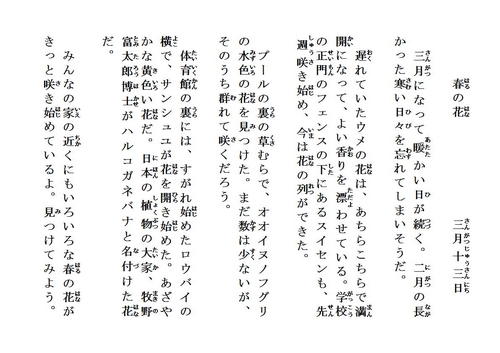 春の花　三月十三日
三月になって暖かい日が続く。二月の長
かった寒い日々を忘れてしまいそうだ。
遅れていたウメの花は、あちらこちらで満
開になって、よい香りを漂わせている。学校
の正門のフェンスの下にあるスイセンも、先
週咲き始め、今は花の列ができた。
プールの裏の草むらで、オオイヌノフグリ
の水色の花を見つけた。まだ数は少ないが、
そのうち群れて咲くだろう。
体育館の裏には、すがれ始めたロウバイの
横で、サンシュユが花を開き始めた。あざや
かな黄色い花だ。日本の植物の大家、牧野
富太郎博士がハルコガネバナと名付けた花
だ。
みんなの家の近くにもいろいろな春の花が
きっと咲き始めているよ。見つけてみよう。